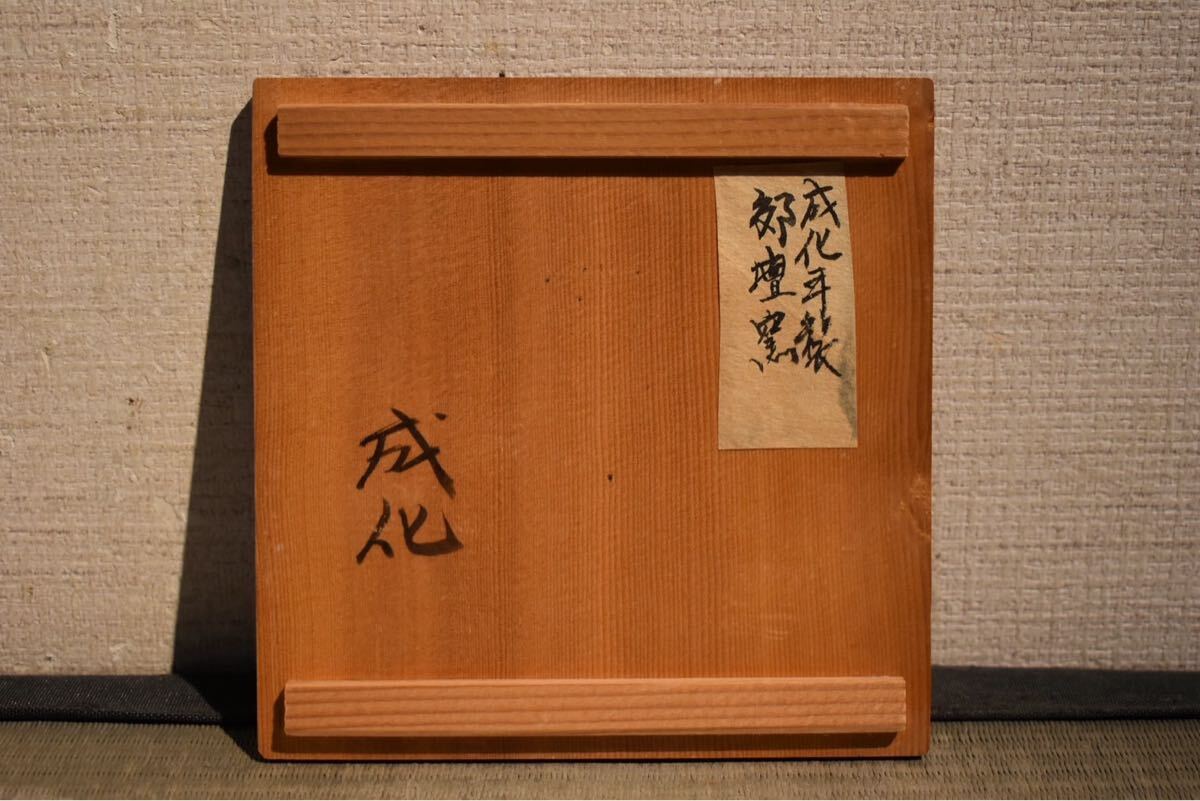 成化年製
郊壇窯
成化